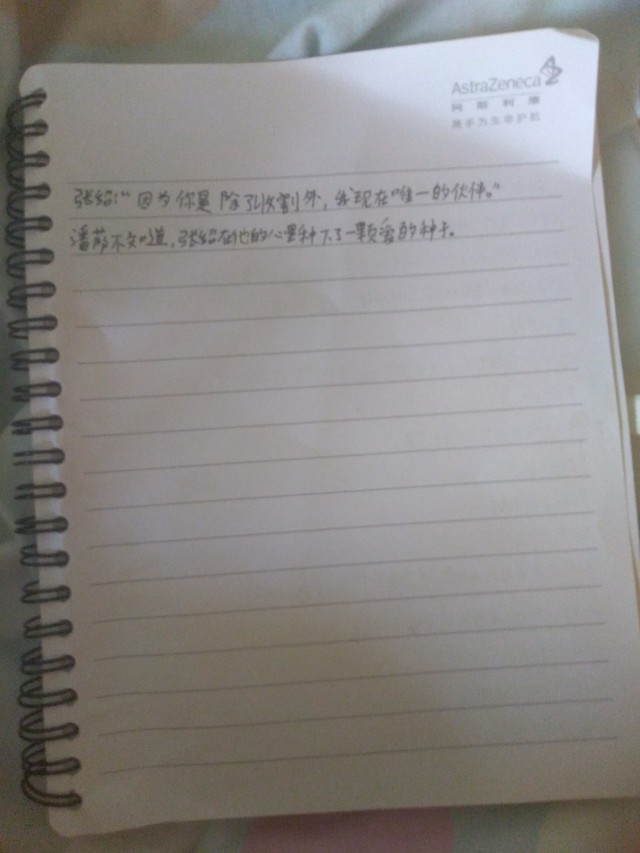 AstraZeneca
阿斯利康
携手为生命护航
张绍:“因为你是除了收割外,我现在唯一的伙伴。”
潘莎不知道,张绍在她的心里种下了一颗爱的种子。